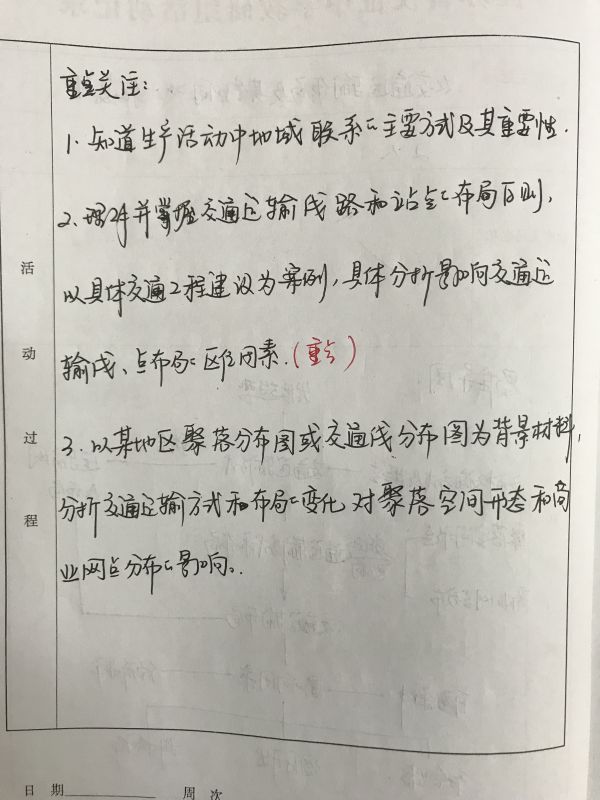 重点关注:
1. 知道生产活动中地域联系的主要方式及其重要性.
2. 理解并掌握交通运输线路和站点的布局原则,
以具体交通工程建设为案例, 具体分析影响交通运
输线、点布局的区位因素. (重点)
3. 以某地区聚落分布图或交通线分布图为背景材料,
分析交通运输方式和布局的变化对聚落空间形态和商
业网点分布的影响.
活
动
过
程
日 期 周 次